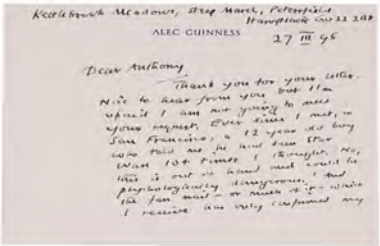 Kettlebrook Meadows, Steep Marsh, Petersfield
Hampshire GU32 2
ALEC GUINNESS
27 III 95
Dear Anthony
Thank you for your letter.
Nice to hear from you but I'm
afraid I am not going to meet
your request. Ever since I met, in
San Francisco, a 12 year old boy
who told me he had seen Star
Wars 104 times I thought, No,
this is out of hand and could be
psychologically dangerous. And
the fan mail – or much of it – which
I receive has only confirmed my